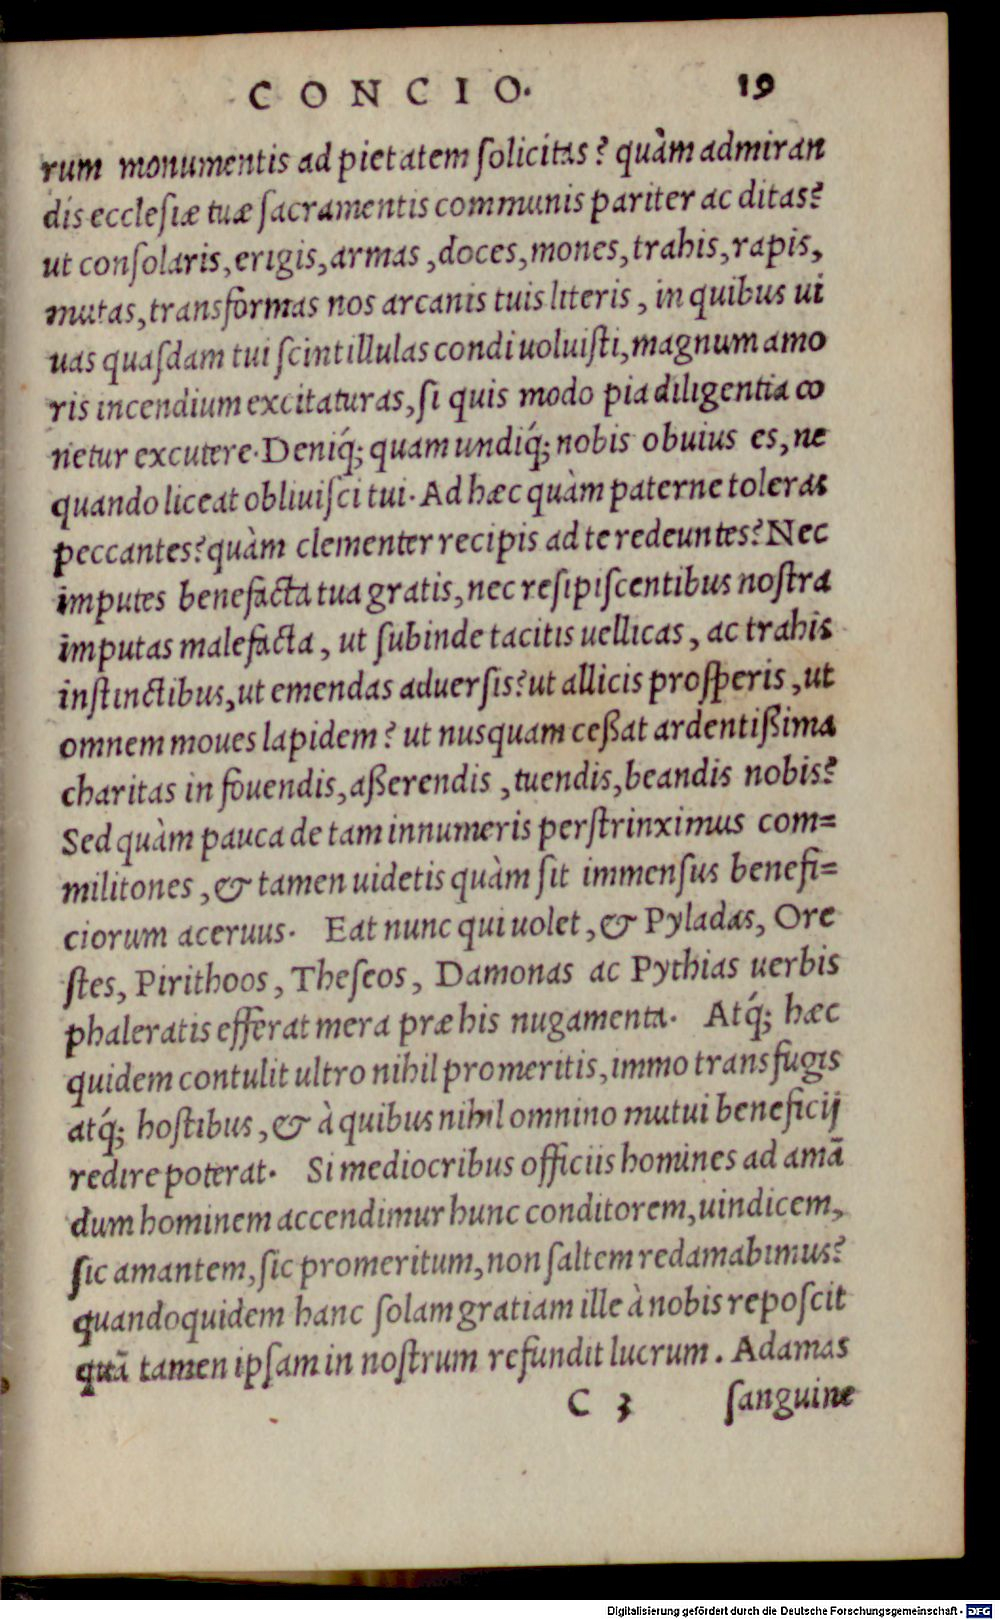 CONCIO. 19
rum monumentis ad pietatem ſolicitas? quàm admiran
dis eccleſiæ tuæ ſacramentis communis pariter ac ditas?
ut conſolaris, erigis, armas, doces, mones, trahis, rapis,
mutas, transformas nos arcanis tuis literis, in quibus ui
uas quaſdam tui ſcintillulas condi uoluiſti, magnum amo
ris incendium excitaturas, ſi quis modo pia diligentia co
netur excutere. Deniq́; quam undiq́; nobis obuius es, ne
quando liceat obliuiſci tui. Ad hæc quàm paterne toleras
peccantes? quàm clementer recipis ad te redeuntes? Nec
imputes benefacta tua gratis, nec reſipiſcentibus noſtra
imputas malefacta, ut ſubinde tacitis uellicas, ac trahis
inſtinctibus, ut emendas aduerſis? ut allicis proſperis, ut
omnem moues lapidem? ut nusquam ceßat ardentißima
charitas in fouendis, aßerendis, tuendis, beandis nobis?
Sed quàm pauca de tam innumeris perſtrinximus com=
militones, & tamen uidetis quàm ſit immenſus benefi=
ciorum aceruus. Eat nunc qui uolet, & Pyladas, Ore
ſtes, Pirithoos, Theſeos, Damonas ac Pythias uerbis
phaleratis efferat mera præ his nugamenta. Atq́; hæc
quidem contulit ultro nihil promeritis, immo transfugis
atq́; hoſtibus, & à quibus nihil omnino mutui beneficij
redire poterat. Si mediocribus officiis homines ad amā
dum hominem accendimur hunc conditorem, uindicem,
ſic amantem, ſic promeritum, non ſaltem redamabimus?
quandoquidem hanc ſolam gratiam ille à nobis repoſcit
quā tamen ipſam in noſtrum refundit lucrum. Adamas
C 3 ſanguine
Digitalisierung gefördert durch die Deutsche Forschungsgemeinschaft - DFG